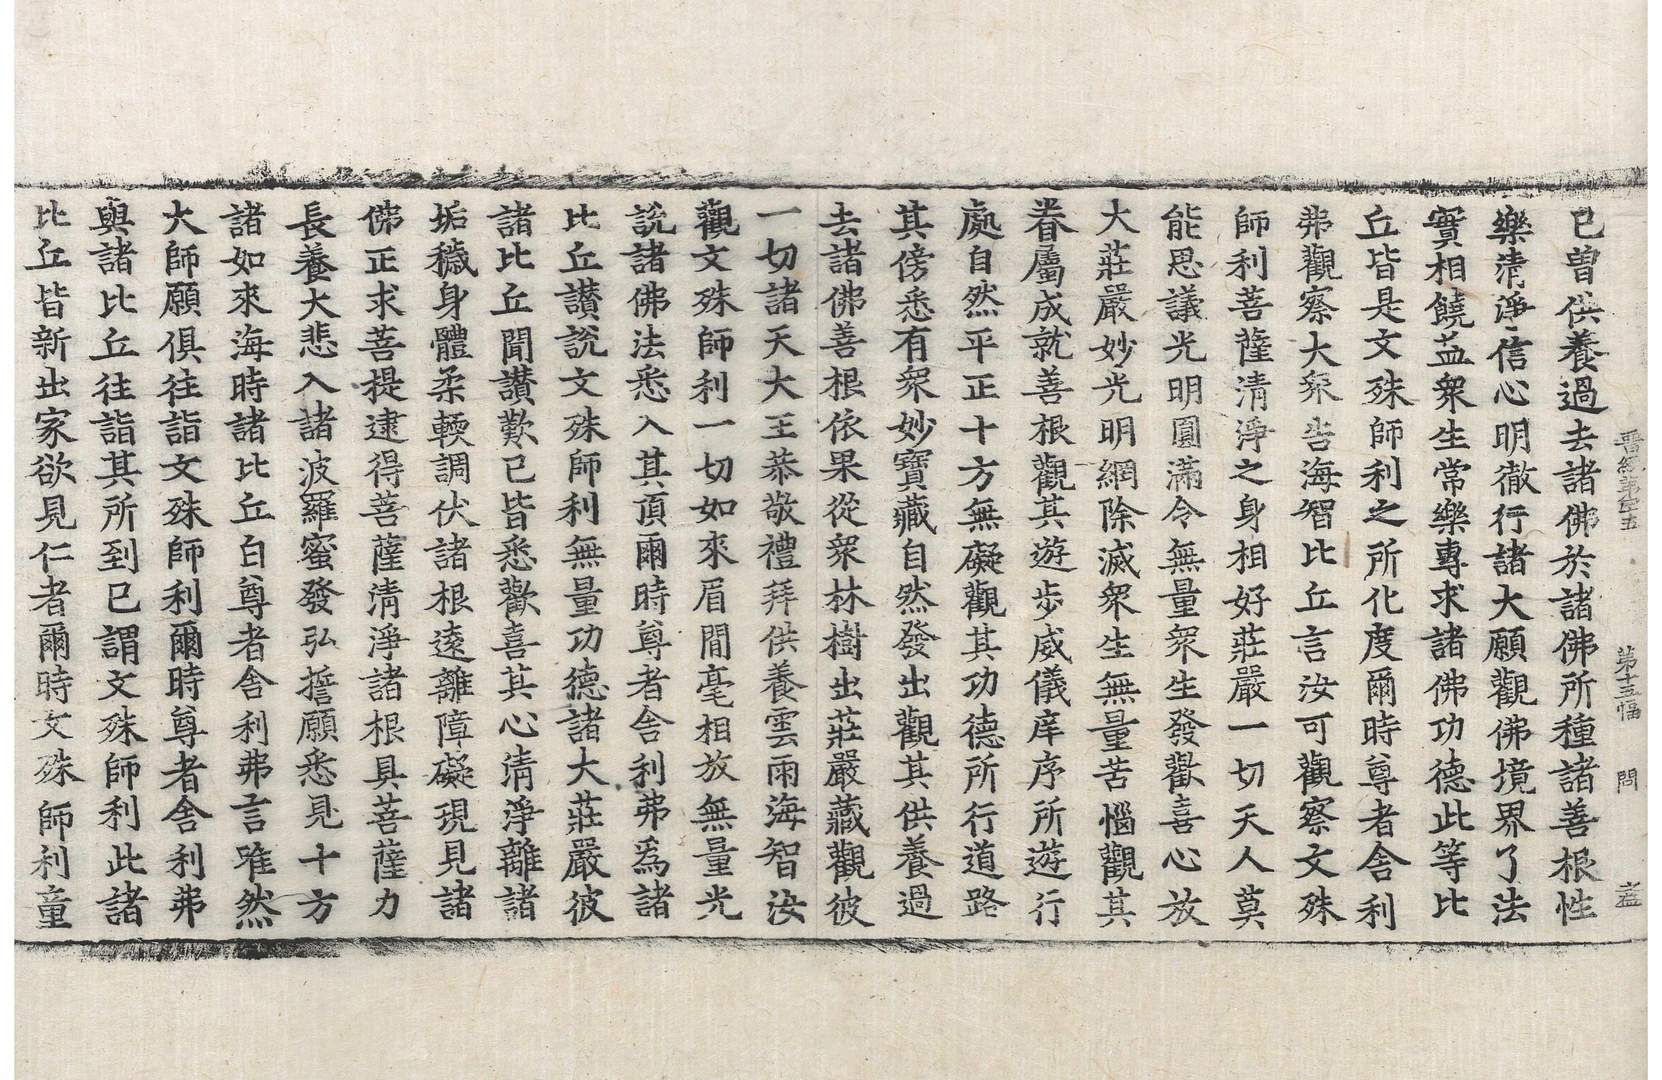 晋經第四十五 第十三幅 問 盖
已曽供養過去諸佛於諸佛所種諸善根性
樂清淨信心明徹行諸大願觀佛境界了法
實相饒益衆生常樂專求諸佛功德此等比
丘皆是文殊師利之所化度爾時尊者舎利
弗觀察大衆告海智比丘言汝可觀察文殊
師利菩薩清淨之身相好莊嚴一切天人莫
能思議光明圓滿令無量衆生發歡喜心放
大莊嚴妙光明網除滅衆生無量苦惱觀其
眷屬成就善根觀其遊步威儀庠序所遊行
處自然平正十方無礙觀其功德所行道路
其傍悉有衆妙寶藏自然發出觀其供養過
去諸佛善根依果從衆林樹出莊嚴藏觀彼
一切諸天大王恭敬禮拜供養雲雨海智汝
觀文殊師利一切如來眉間毫相放無量光
說諸佛法悉入其頂爾時尊者舎利弗爲諸
比丘讃說文殊師利無量功德諸大莊嚴彼
諸比丘聞讃歎已皆悉歡喜其心清淨離諸
垢穢身體柔輭調伏諸根遠離障礙現見諸
佛正求菩提逮得菩薩清淨諸根具菩薩力
長養大悲入諸波羅蜜發弘誓願悉見十方
諸如來海時諸比丘白尊者舎利弗言唯然
大師願俱往詣文殊師利爾時尊者舎利弗
與諸比丘往詣其所到已謂文殊師利此諸
比丘皆新出家欲見仁者爾時文殊師利童